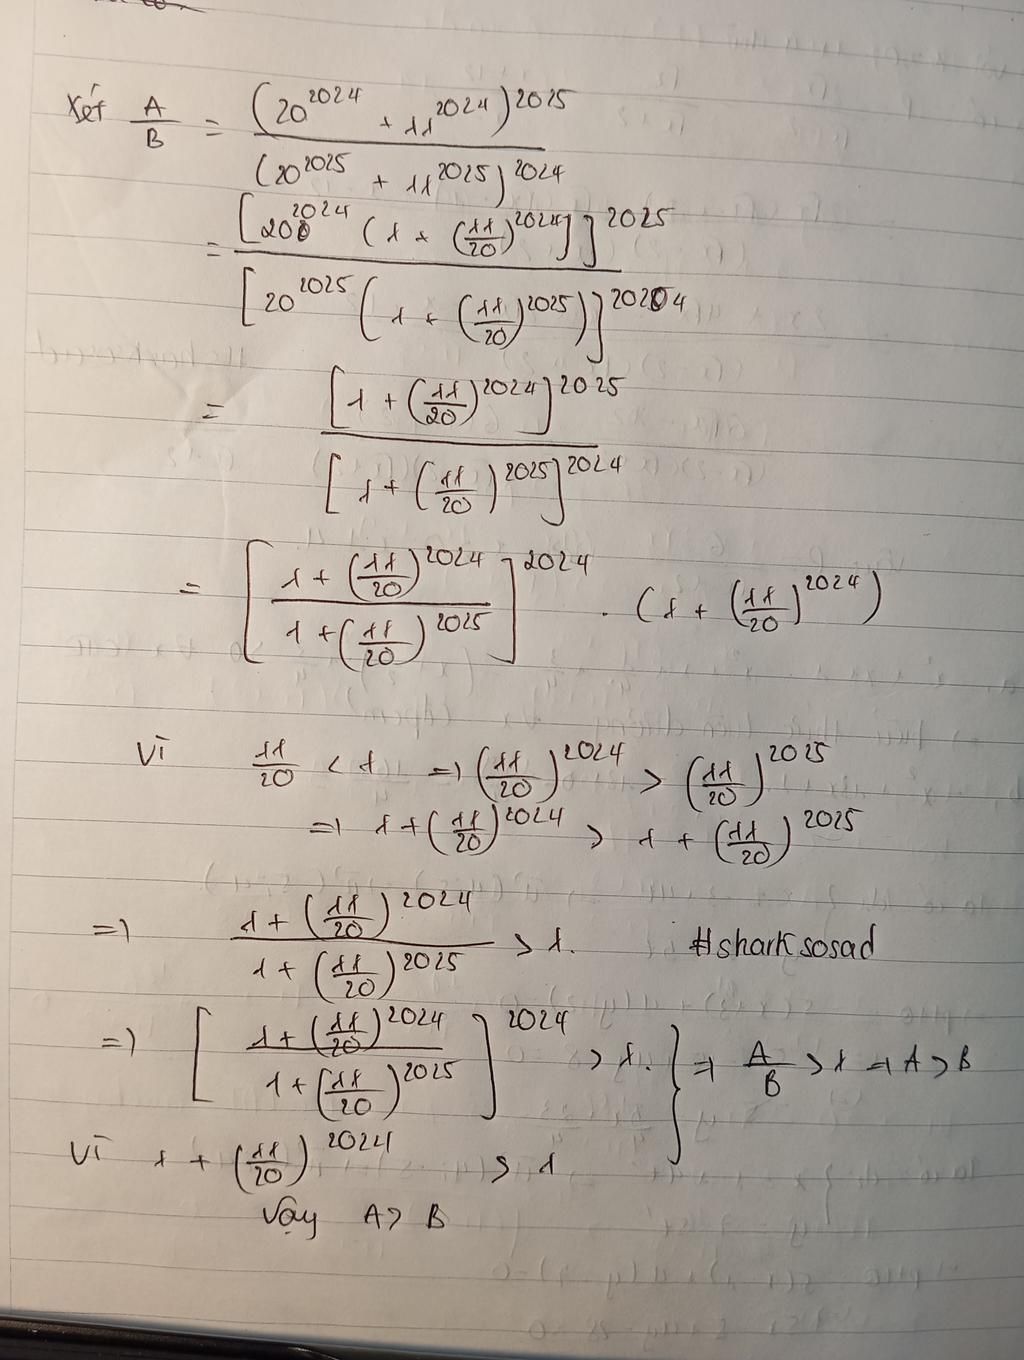 Xét A/B = (20^2024 + 11^2024)^2025 / (20^2025 + 11^2025)^2024
= [20^2024 (1 + (11/20)^2024)]^2025 / [20^2025 (1 + (11/20)^2025)]^2024
= [1 + (11/20)^2024]^2025 / [1 + (11/20)^2025]^2024
= [(1 + (11/20)^2024) / (1 + (11/20)^2025)]^2024 . (1 + (11/20)^2024)
Vì 11/20 < 1 => (11/20)^2024 > (11/20)^2025
=> 1 + (11/20)^2024 > 1 + (11/20)^2025
=> (1 + (11/20)^2024) / (1 + (11/20)^2025) > 1. #sharksosad
=> [(1 + (11/20)^2024) / (1 + (11/20)^2025)]^2024 > 1. } => A/B > 1 => A > B
Vì 1 + (11/20)^2024 > 1
Vậy A > B